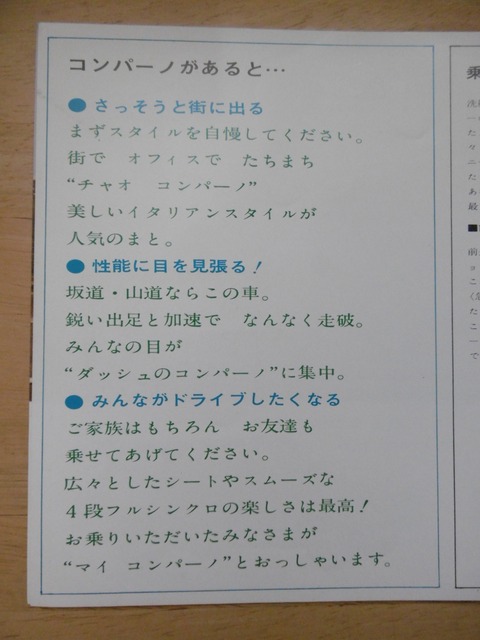 コンパーノがあると…
● さっそうと街に出る
まずスタイルを自慢してください。
街で　オフィスで　たちまち
“チャオ　コンパーノ”
美しいイタリアンスタイルが
人気のまと。
● 性能に目を見張る！
坂道・山道ならこの車。
鋭い出足と加速で　なんなく走破。
みんなの目が
“ダッシュのコンパーノ”に集中。
● みんながドライブしたくなる
ご家族はもちろん　お友達も
乗せてあげてください。
広々としたシートやスムーズな
4段フルシンクロの楽しさは最高！
お乗りいただいたみなさまが
“マイ　コンパーノ”とおっしゃいます。